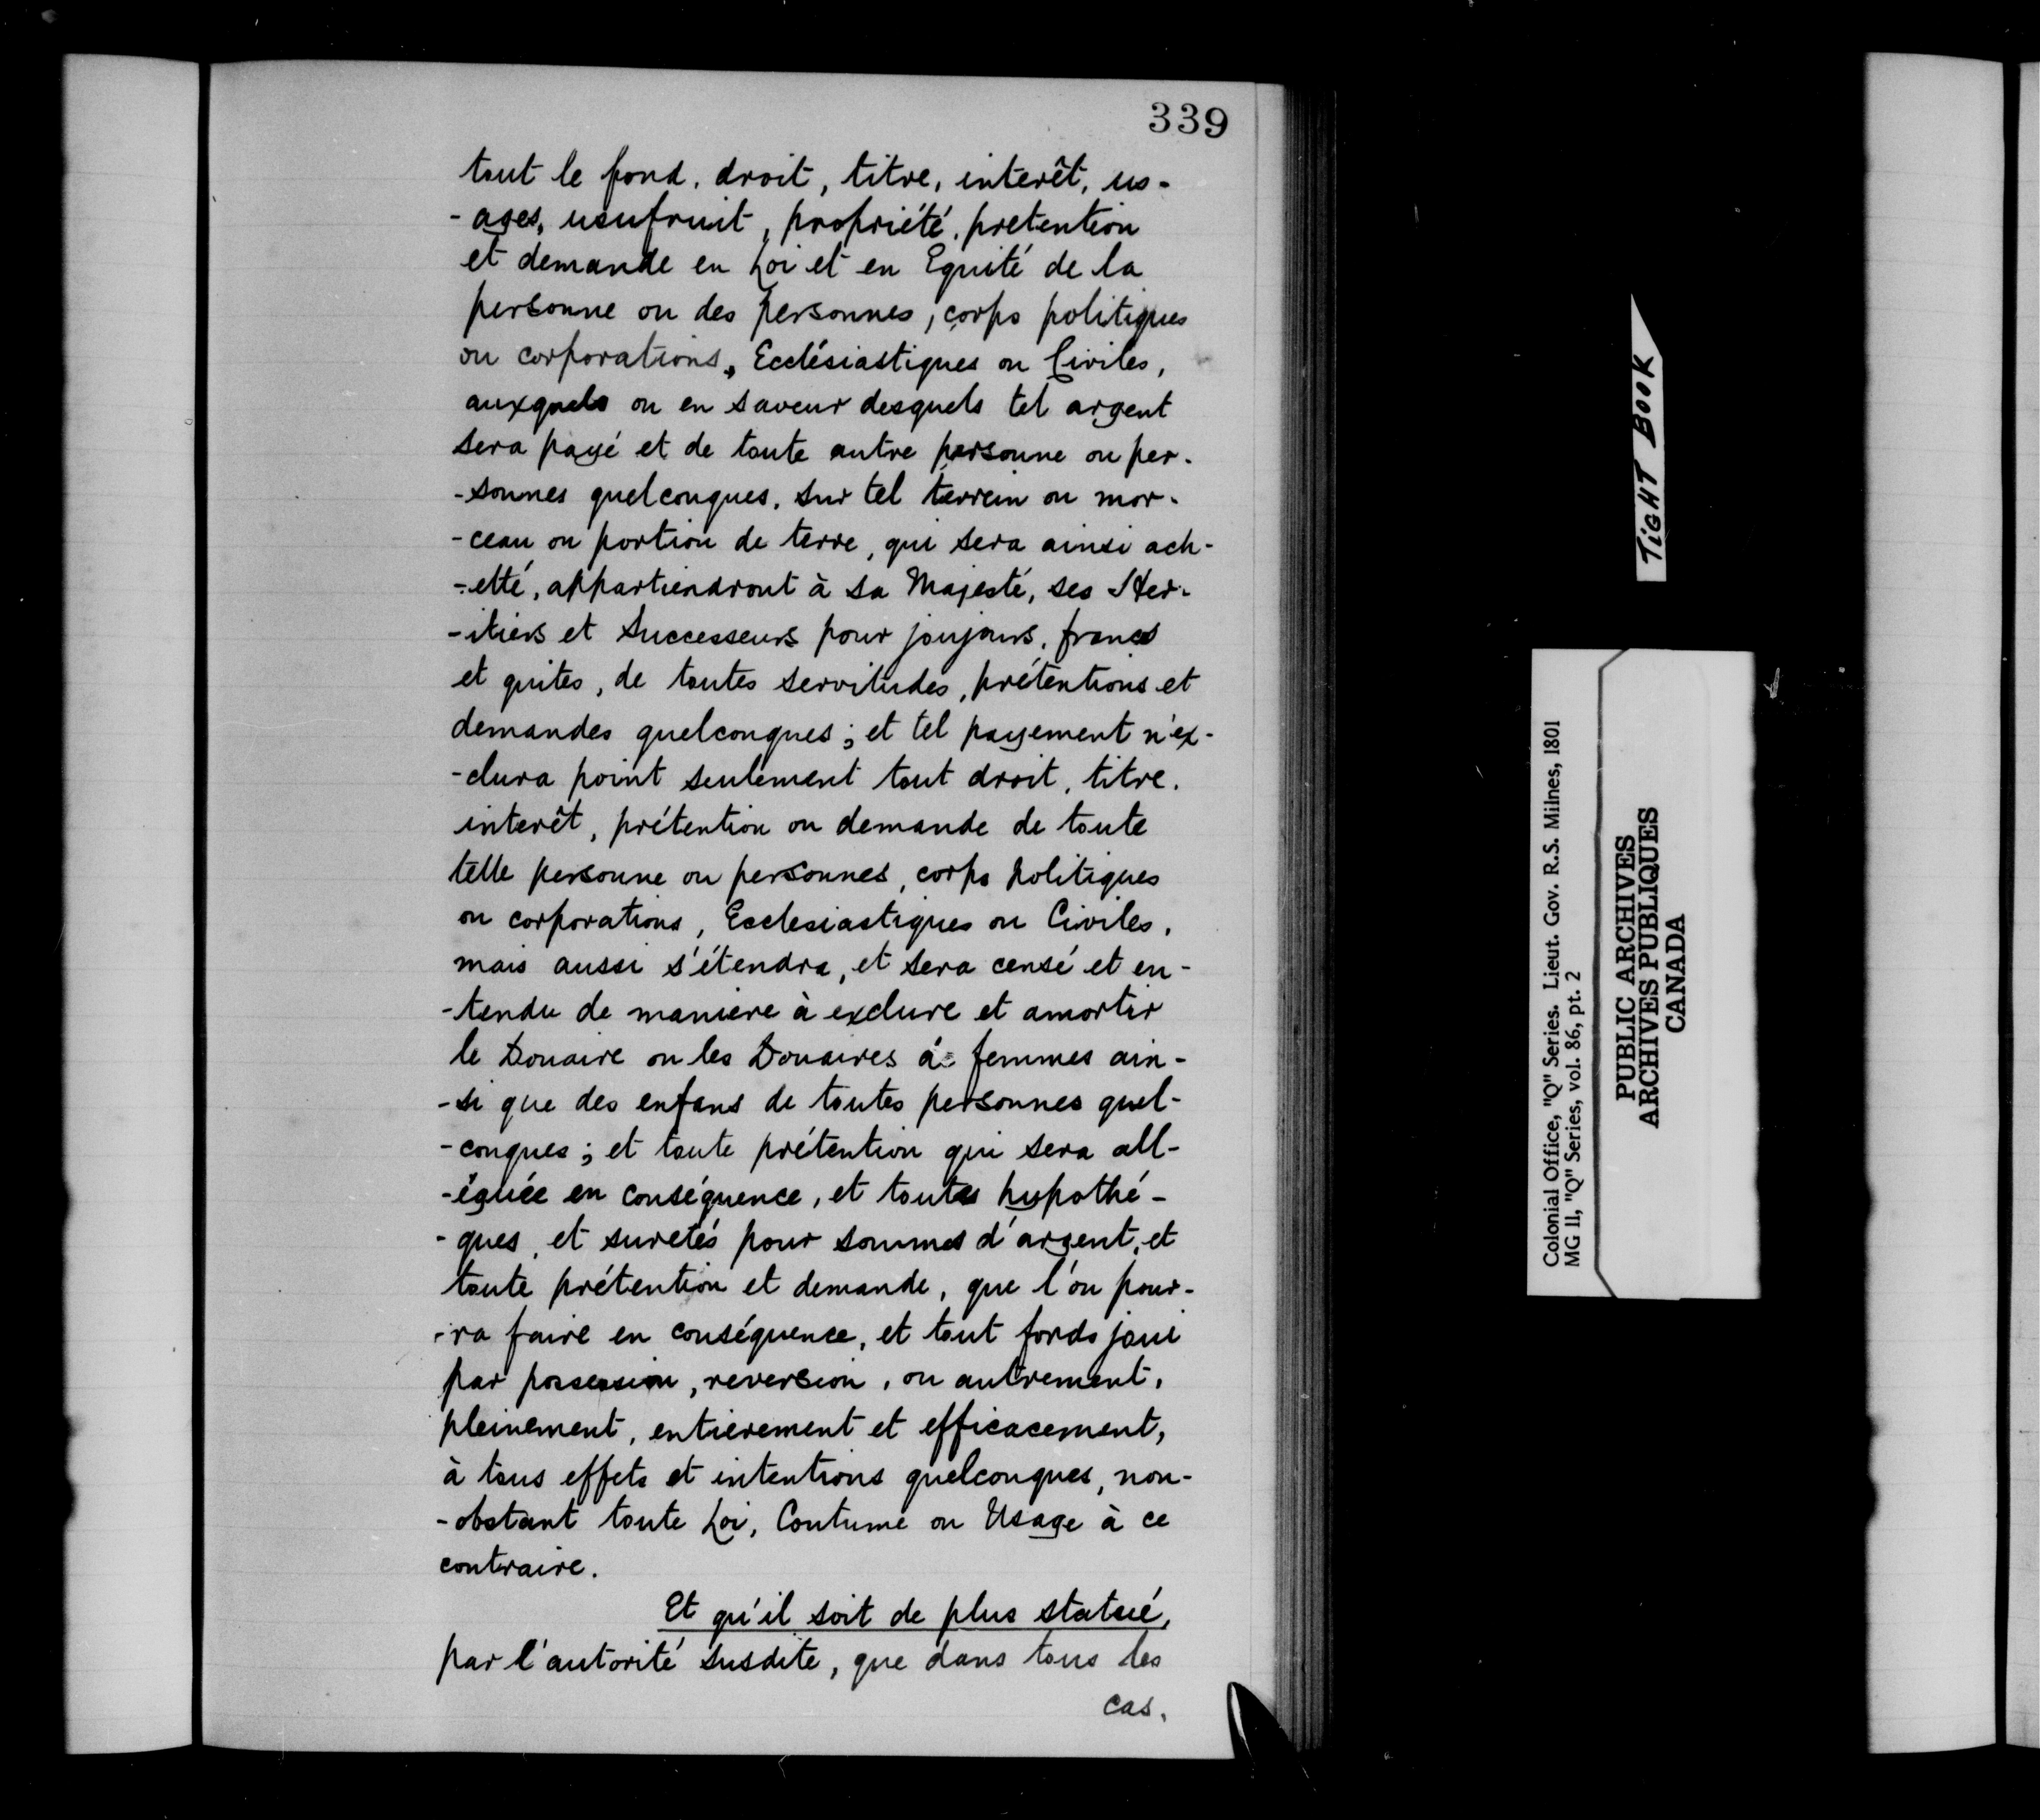 339
tout le fond, droit, titre, interêt, us-
-ages, usufruit, propriété, pretention
et demande en Loi et en Equité de la
personne ou des personnes, corps politiques
ou corporations, Ecclésiastiques ou Civiles,
auxquels ou en saveur desquels tel argent
sera payé et de toute autre personne ou per-
-sonnes quelconques, sur tel terrein ou mor-
-ceau ou portion de terre, qui sera ainsi ach-
-etté, appartiendront à sa Majesté, ses Her-
-itiers et Successeurs pour joujours, francs
et quites, de toutes servitudes, prétentions et
demandes quelconques; et tel payement n'ex-
-clura point seulement tout droit, titre,
interêt, prétention ou demande de toute
telle personne ou personnes, corps politiques
ou corporations, Ecclesiastiques ou Civiles,
mais aussi s'étendra, et sera censé et en-
-tendu de maniere à exclure et amortir
le Douaire ou les Douaires de femmes ain-
-si que des enfans de toutes personnes quel-
-conques; et toute prétention qui sera all-
-éguée en conséquence, et toutes hypothé-
-ques, et suretés pour sommes d'argent, et
toute prétention et demande, que l'on pour-
-ra faire en conséquence, et tout fonds joui
par possession, reversion, ou autrement,
pleinement, entierement et efficacement,
à tous effets et intentions quelconques, non-
-obstant toute Loi, Coutume ou Usage à ce
contraire.
Et qu'il soit de plus statué,
par l'autorité susdite, que dans tous les
cas,
TIGHT BOOK
Colonial Office, "Q" Series. Lieut. Gov. R.S. Milnes, 1801
MG 11, "Q" Series, vol. 86, pt. 2
PUBLIC ARCHIVES
ARCHIVES PUBLIQUES
CANADA